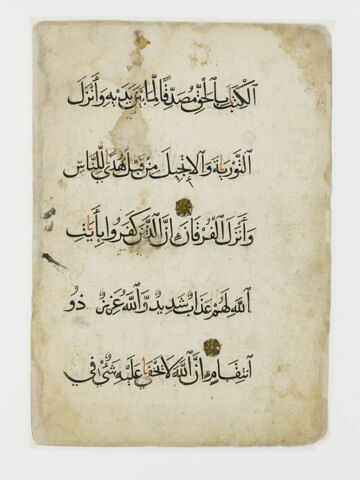 ٱلْكِتَٰبَ بِٱلْحَقِّ مُصَدِّقًا لِّمَا بَيْنَ يَدَيْهِ وَأَنْزَلَ
ٱلتَّوْرَىٰةَ وَٱلْإِنْجِيلَ مِنْ قَبْلُ هُدًى لِّلنَّاسِ
وَأَنْزَلَ ٱلْفُرْقَانَ إِنَّ ٱلَّذِينَ كَفَرُوا بِـَٔايَٰتِ
ٱللَّهِ لَهُمْ عَذَابٌ شَدِيدٌ وَّٱللَّهُ عَزِيزٌ ذُو
ٱنْتِقَامٍ إِنَّ ٱللَّهَ لَا يَخْفَىٰ عَلَيْهِ شَىْءٌ فِي